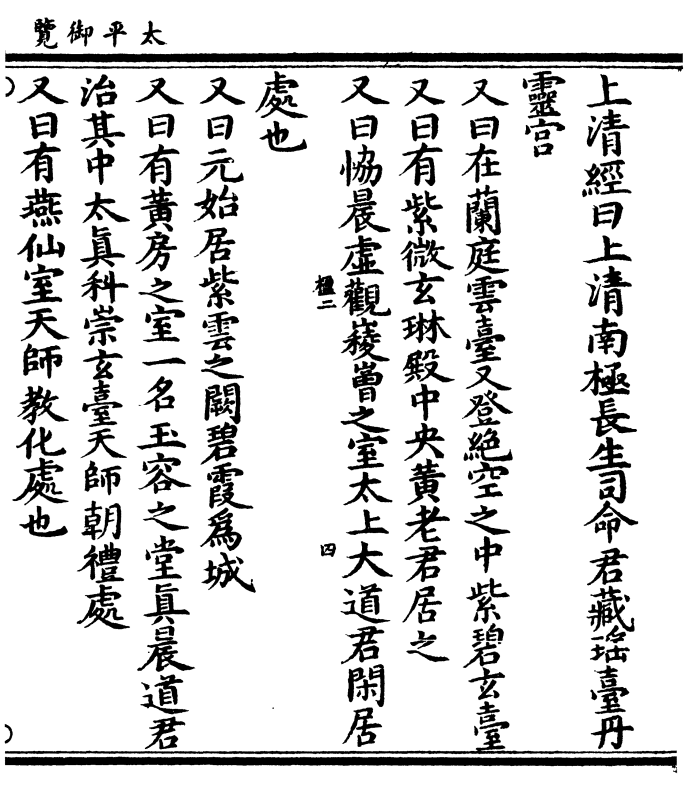 太平御覽
上清經曰上清南極長生司命君藏瑤臺丹
靈宫
又曰在蘭庭雲臺又登絶空之中紫碧玄臺
又曰有紫微玄琳殿中央黃老君居之
又曰恊晨虛觀㚇嶒之室太上大道君閑居
楹二
四
處也
又曰元始居紫雲之闕碧霞爲城
又曰有黃房之室一名玉容之堂眞晨道君
治其中太眞科崇玄臺天師朝禮處
又曰有燕仙室天師教化處也